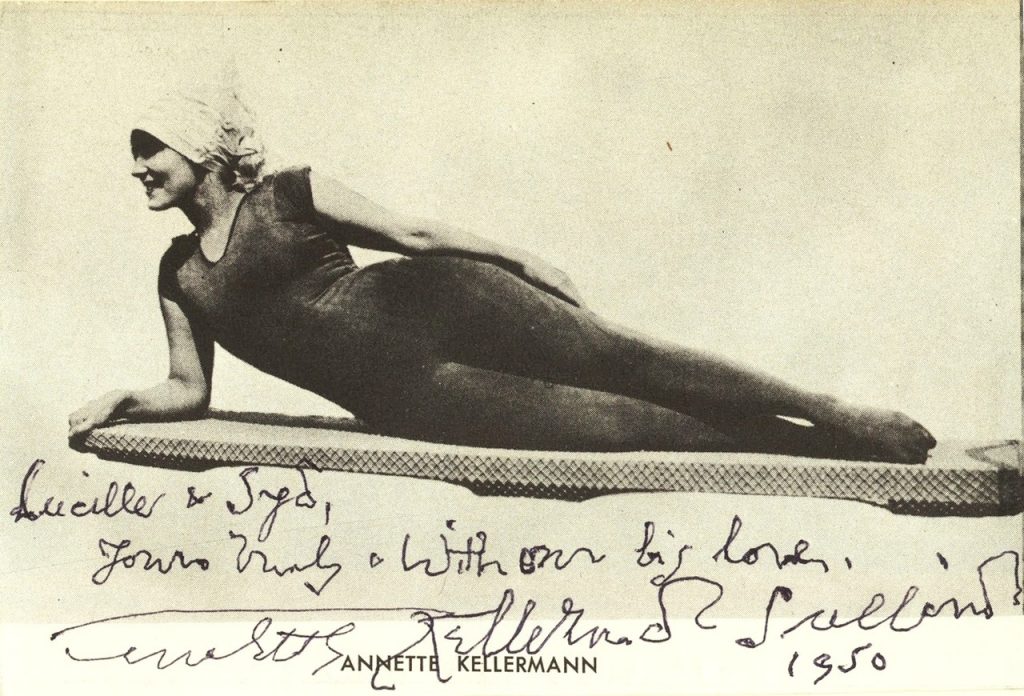 Lucille & Syd,
Yours Truly & With our big love.
Annette Kellermann Sullivan
ANNETTE KELLERMANN
1950